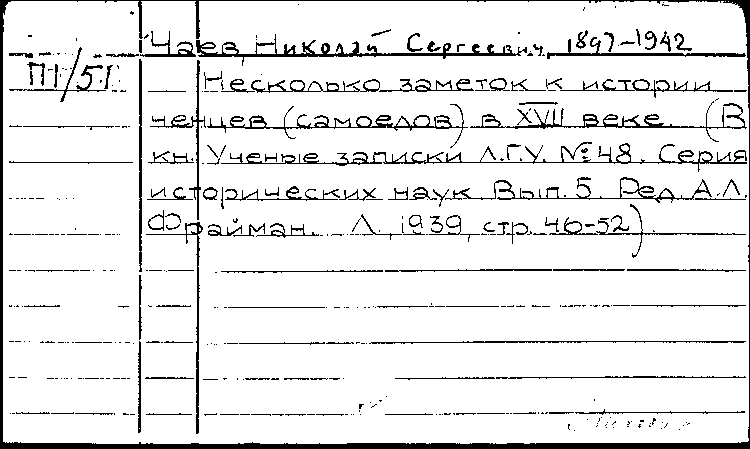 Чаев, Николай Сергеевич, 1897-1942
П1/51
Несколько заметок к истории
ненцев (самоедов) в XVII веке. (В
кн. Ученые записки Л.Г.У. №48. Серия
исторических наук. Вып. 5. Ред. А.Л.
Фрайман. Л., 1939, стр. 46-52).